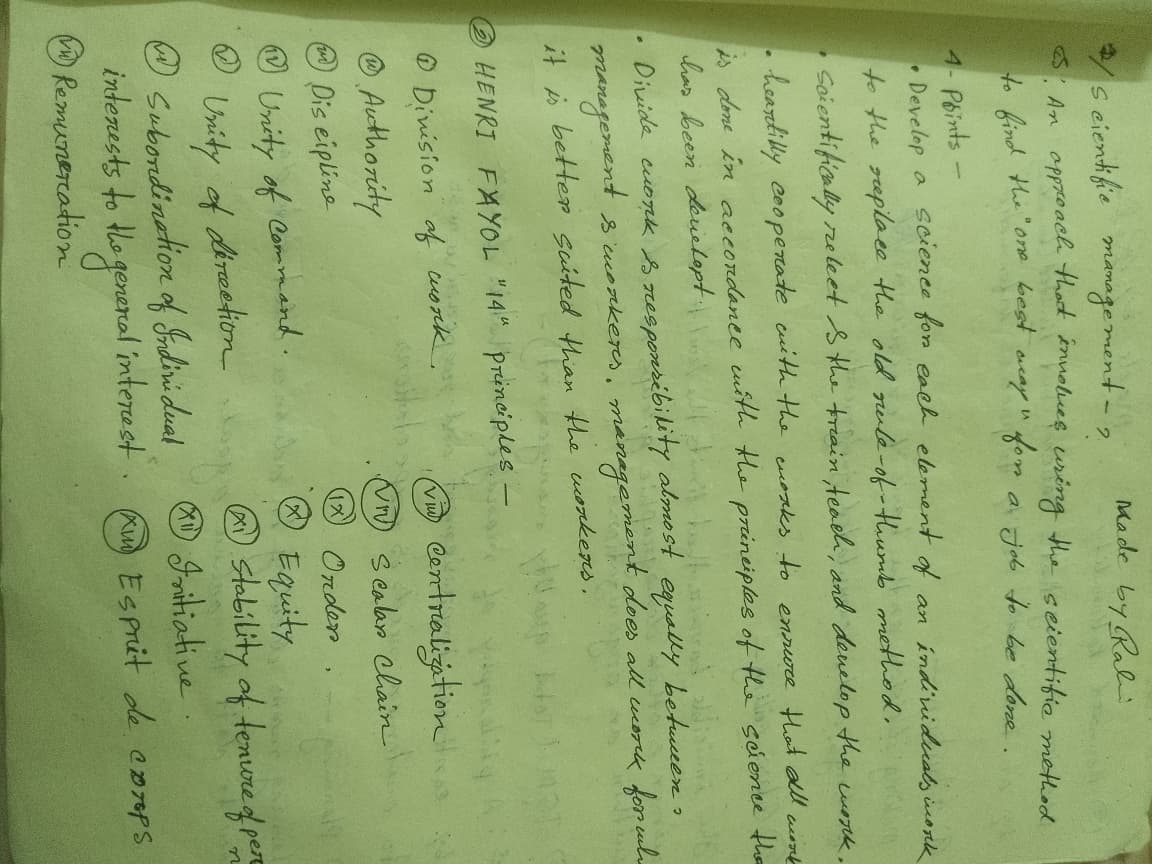 Made by Rabi
7/ Scientific management - ?
S: An approach that involves using the scientific method
to find the "one best way" for a job to be done.
4- Points -
• Develop a science for each element of an individuals work
to the replace the old rule-of-thumb method.
• Scientifically select & the train, teach, and develop the work.
• heartily cooperate with the works to ensure that all work
is done in accordance with the principles of the science tha
has been developt
• Divide work & responsibility almost equally between
management & workers. management does all work for wh
it is better suited than the workers.
② HENRI FAYOL "14" principles -
(i) Division of work.
(ii) Authority
(iii) Discipline
(iv) Unity of Command.
(v) Unity of direction
(vi) Subordination of Individual
interests to the general interest.
(vii) Remuneration
(viii) Centrialization
(viii) Scalar chain
(ix) Order.
(x) Equity
(xi) Stability of tenure of per
(xii) Initiative.
(xiii) Esprit de corps